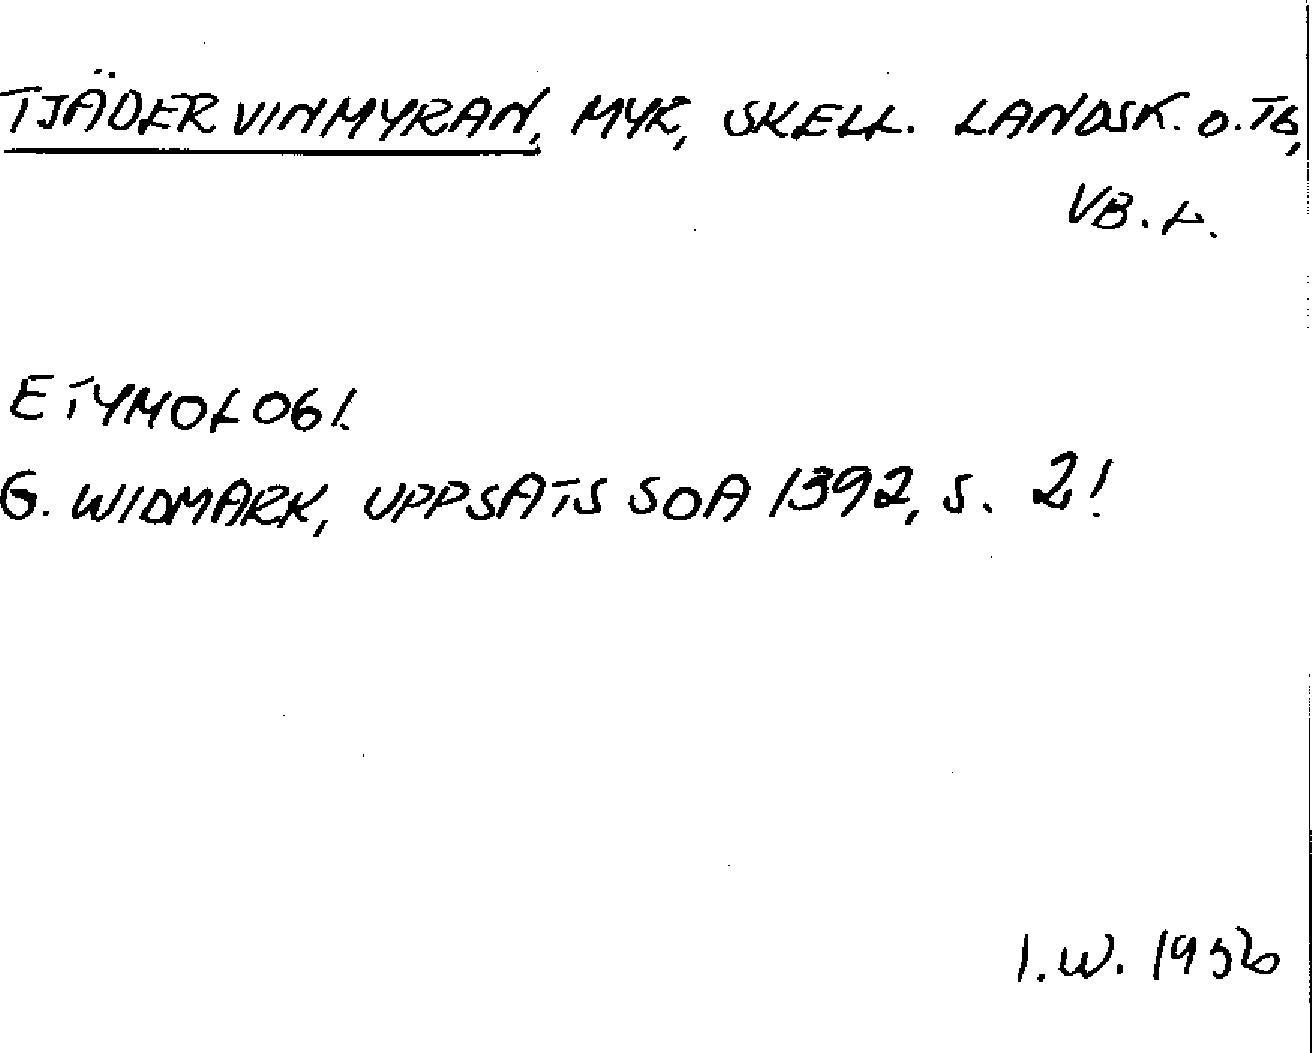 TJÄDERVINMYRAN, MYR, SKELL. LANDSK. O. TG,
VB. L.
ETYMOLOGI.
G. WIDMARK, UPPSATS SOA 1392, S. 2!
I.W. 1956